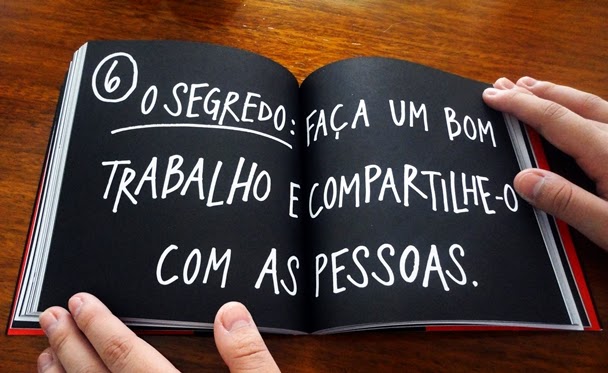 6 O SEGREDO: FAÇA UM BOM
TRABALHO E COMPARTILHE-O
COM AS PESSOAS.